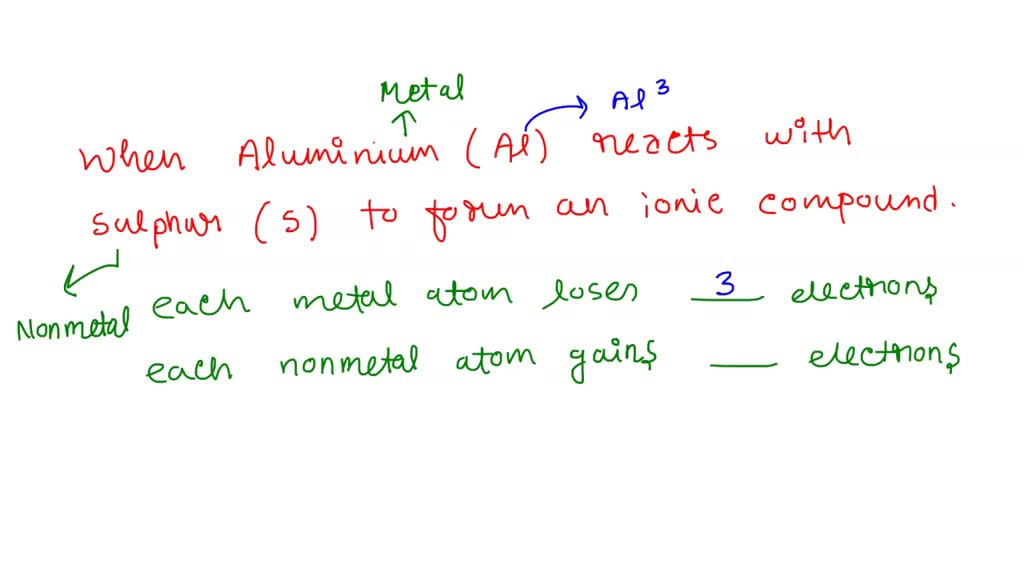 Metal
Al 3
When Aluminium (Al) reacts with
sulphur (S) to form an ionic compound.
each metal atom loses 3 electrons
Nonmetal
each nonmetal atom gains ___ electrons